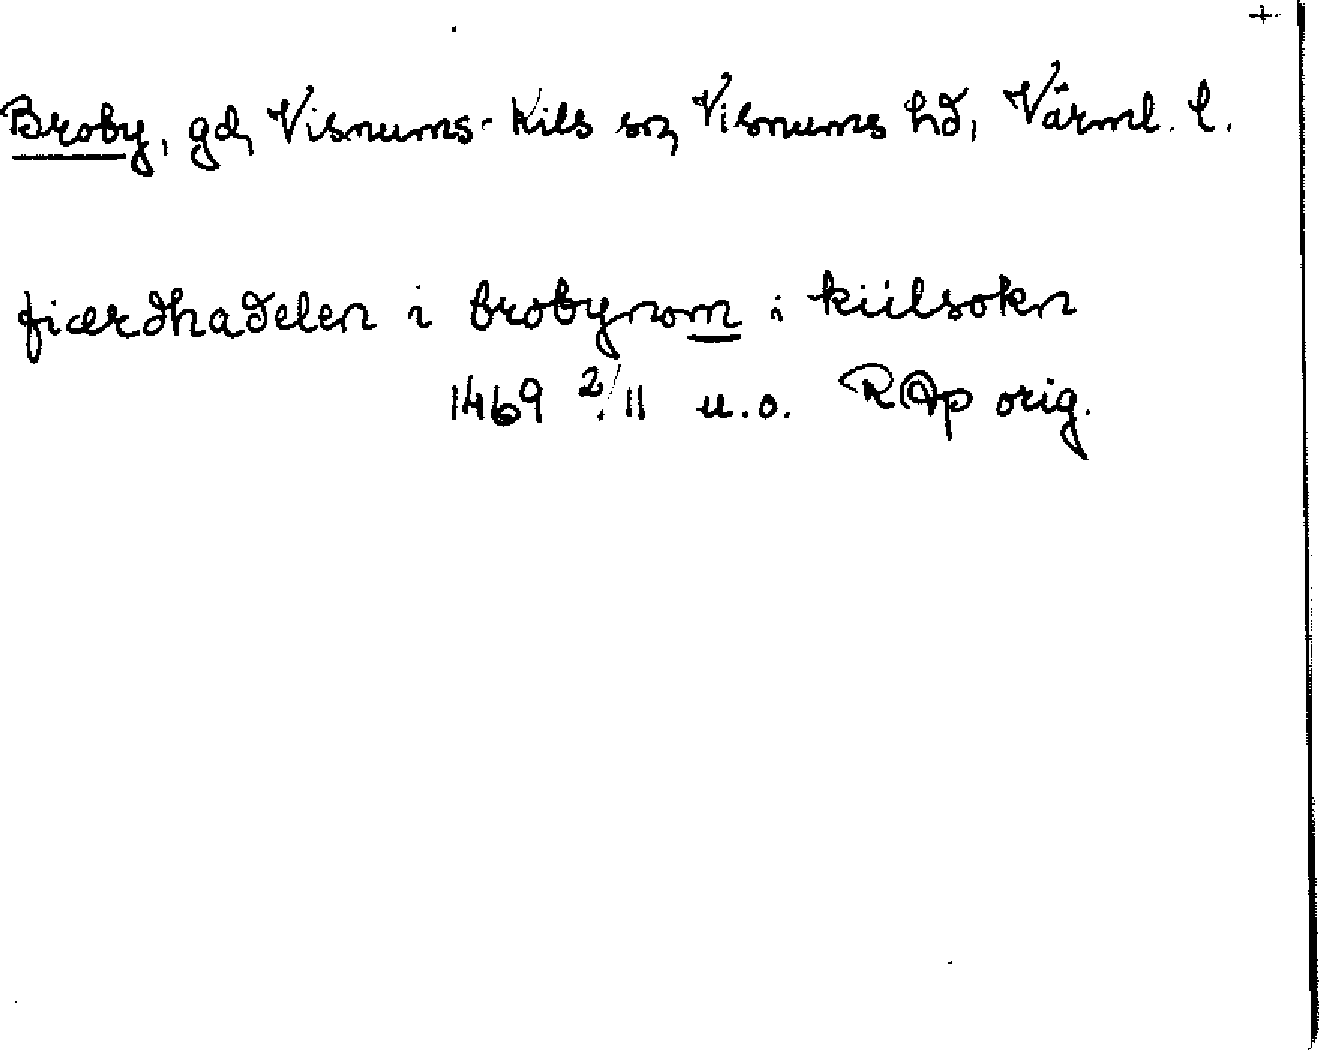 +
Broby, gd, Visnums-Kils sn, Visnums hd, Värml. l.
fiærdhadelen i brobynom i kiilsokn
1469 2/11 u.o. RAp orig.